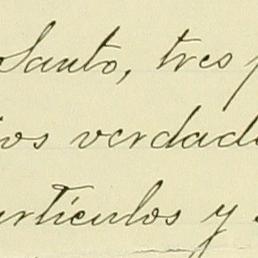 Santo, tres p
ios verdade
artículos y